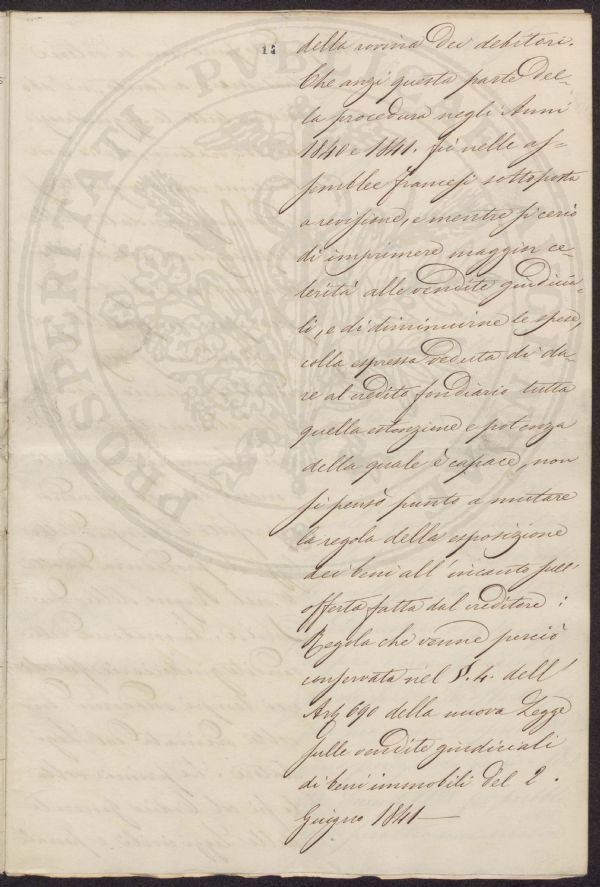 14
della rovina dei debitori.
Che anzi questa parte del-
la procedura negli Anni
1840 e 1841. fù nelle as-
semblee francesi sottoposta
a revisione, e mentre si cercò
di imprimere maggior ce-
lerità alle vendite giudicia-
li, e di diminuirne le spese,
colla espressa veduta di da-
re al credito fondiario tutta
quella estenzione e potenza
della quale è capace, non
si pensò punto a mutare
la regola della esposizione
dei beni all'incanto sull'
offerta fatta dal creditore:
Regola che venne perciò
conservata nel §. 4. dell'
Art. 690 della nuova Legge
sulle vendite giudiciali
di beni immobili del 2.
Giugno 1841—
PROSPERITATI PUBLICAE